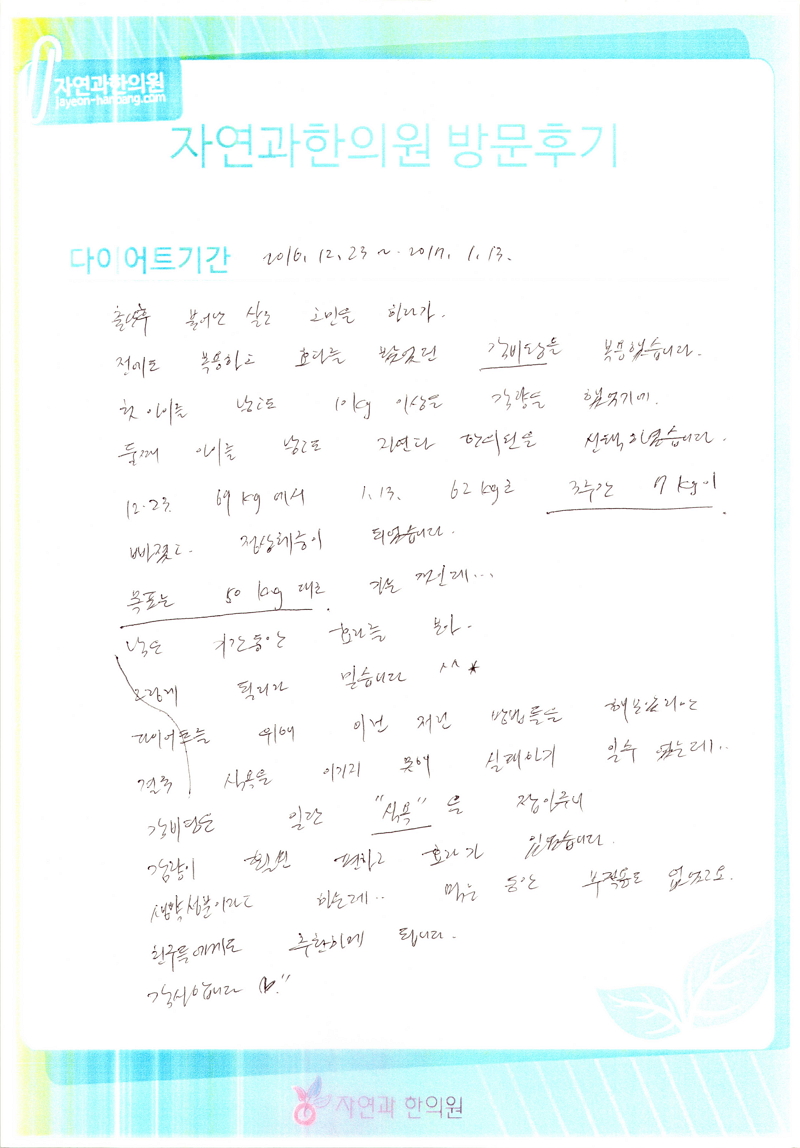 자연과한의원
jayeon-hanbang.com
자연과한의원 방문후기
다이어트기간 2016. 12. 23 ~ 2017. 1. 13.
출산후 불어난 살로 고민을 하다가.
전에도 복용하고 효과를 봤었던 감비탕을 복용했습니다.
첫 아이를 낳고도 10kg 이상을 감량을 했었기에.
둘째 아이를 낳고도 자연과 한의원을 선택하였습니다.
12.23. 69kg에서 1.13. 62kg로 3주간 7kg이
빠졌고. 정상체중이 되었습니다.
목표는 50kg대로 가는 것인데...
남은 기간동안 효과를 보아.
그렇게 되리라 믿습니다 ^^★
다이어트를 위해 이런 저런 방법들을 해보았지만
결국 식욕을 이기지 못해 실패하기 일수 였는데..
감비탕은 일단 "식욕"을 잡아주니
감량이 훨씬 편하고 효과가 있었습니다.
생약성분이라고 하는데.. 먹는 동안 부작용도 없었고요.
친구들에게도 추천하게 됩니다.
감사합니다
자연과 한의원